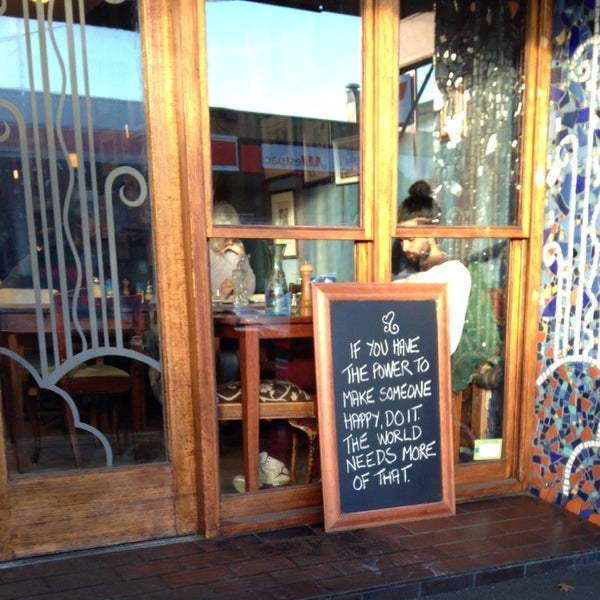 Westpac
IF YOU HAVE
THE POWER TO
MAKE SOMEONE
HAPPY, DO IT
THE WORLD
NEEDS MORE
OF THAT.